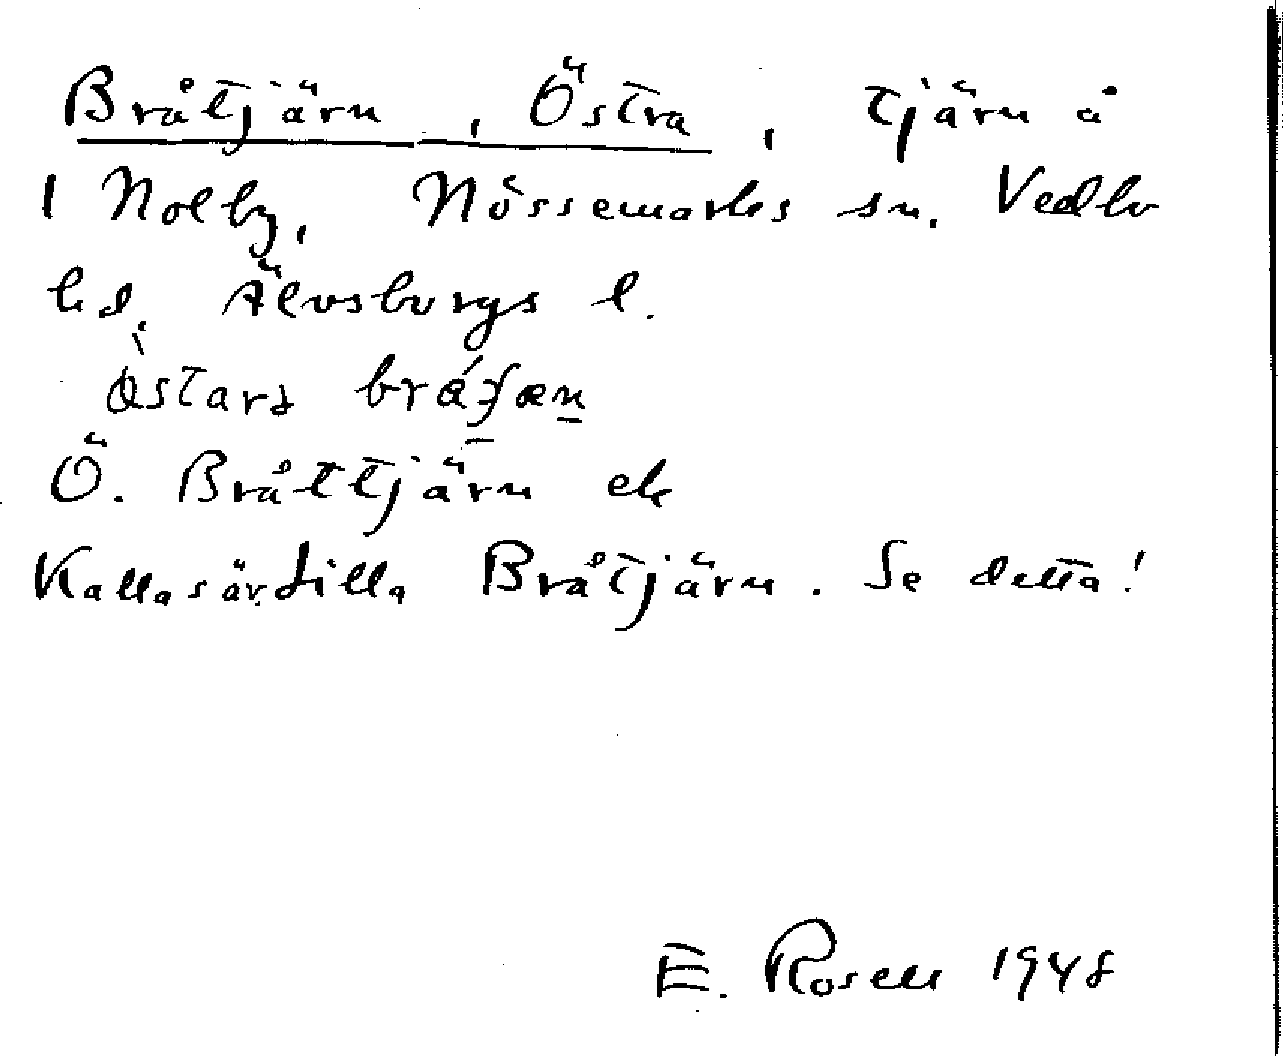 Bråtjärn, Östra, tjärn å
1 Nolby, Nössemarks sn. Vedbo
hd, Älvsborgs l.
Ö. Bråttjärn ek
Kallas är. Lilla Bråtjärn. Se detta!
E. Rosell 1948